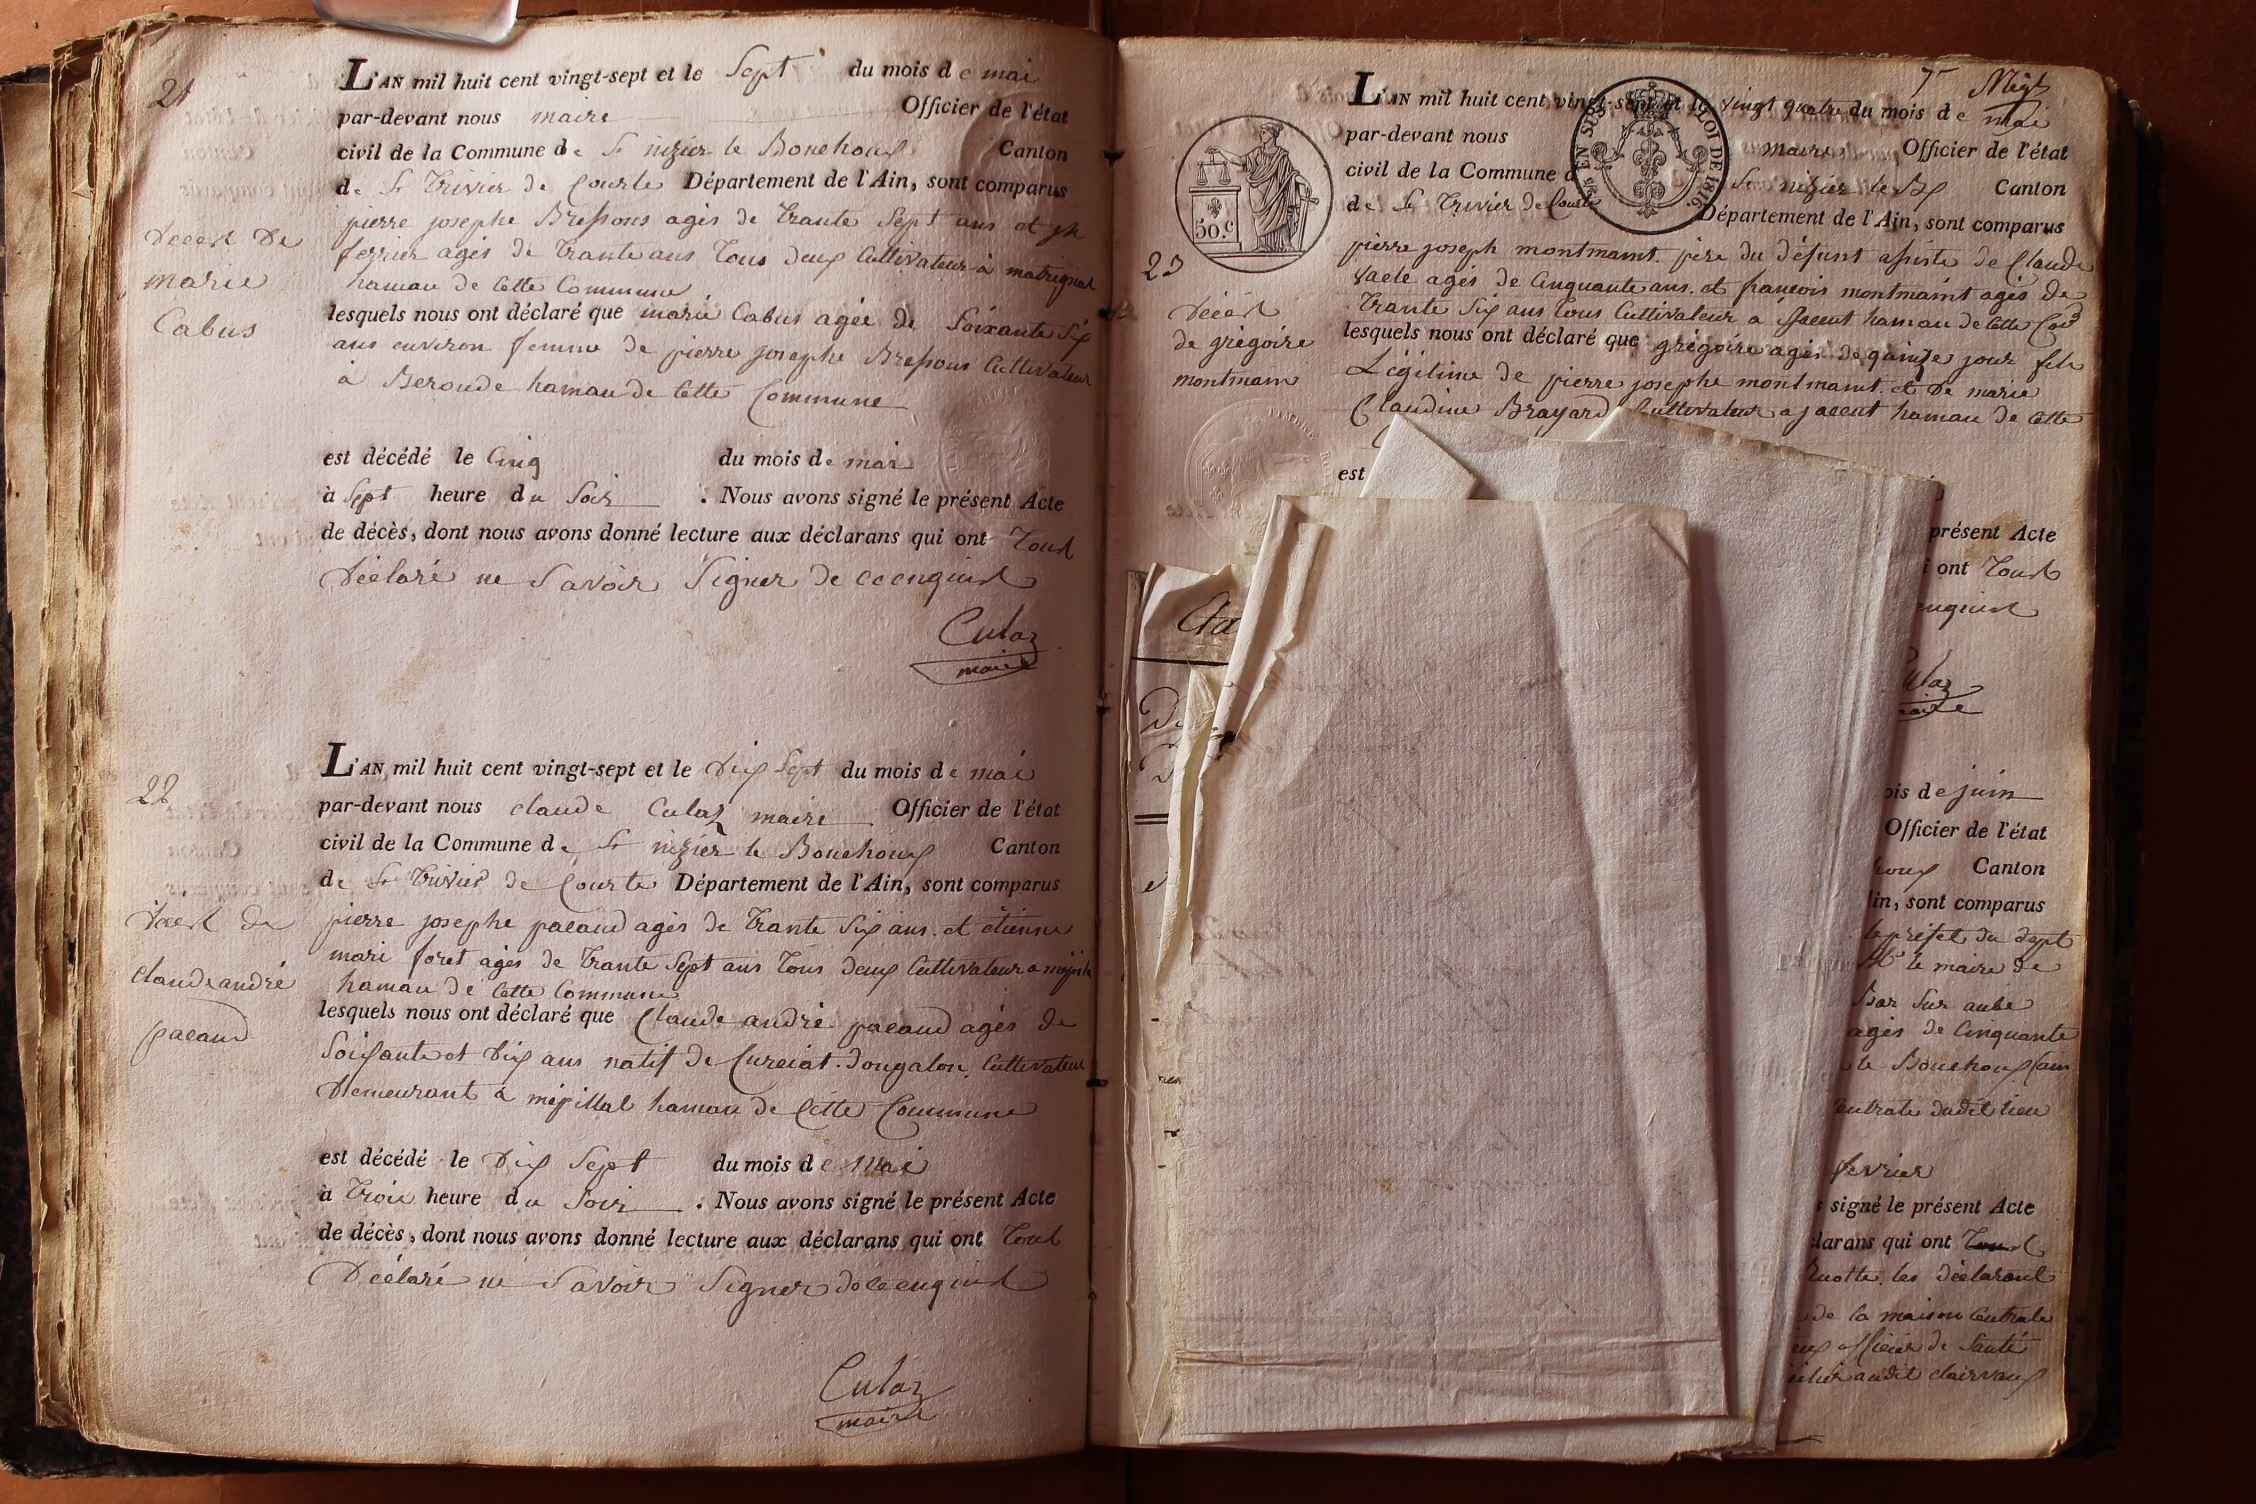 21
L'AN mil huit cent vingt-sept et le Sept du mois de mai
par-devant nous maire Officier de l'état
civil de la Commune de St nizier le Bouchoux Canton
de St Trivier de Courte Département de l'Ain, sont comparus
pierre josephe Bressous agés de trante Sept ans et
ferrier agés de trante ans tous deux Cultivateur à matrignat
hamau de Cette Commune
lesquels nous ont déclaré que marie Cabus agée de Soixante Six
ans environ femme de pierre josephe Bressous Cultivateur
à Beroude hamau de Cette Commune
Décest De
marie
Cabus
est décédé le Cinq du mois de mai
à Sept heure du Soir . Nous avons signé le présent Acte
de décès, dont nous avons donné lecture aux déclarans qui ont tous
Déclaré ne Savoir Signer de ce enquist
Culaz
maire
22
L'AN mil huit cent vingt-sept et le Dix Sept du mois de mai
par-devant nous claude Culaz maire Officier de l'état
civil de la Commune de St nizier le Bouchoux Canton
de St Trivier de Courte Département de l'Ain, sont comparus
pierre josephe pacaud agés de trante Six ans. et étienne
mari foret agés de trante Sept ans tous deux Cultivateur a
hamau de Cette Commune
lesquels nous ont déclaré que Claude andré pacaud agés de
Soixante et Dix ans natif de Curciat-dongalon, Cultivateur
Demeurant à mépillat hamau de Cette Commune
Décest de
claude andré
pacaud
est décédé le Dix Sept du mois de Mai
à Trois heure du Soir . Nous avons signé le présent Acte
de décès, dont nous avons donné lecture aux déclarans qui ont tous
Déclaré ne Savoir Signer de ce enquist
Culaz
maire
7
L'AN mil huit cent vingt-sept et le vingt quatre du mois de mai
par-devant nous maire Officier de l'état
civil de la Commune St nizier le Bx Canton
de St Trivier de Courte Département de l'Ain, sont comparus
EN SUS LOI DE 1816
50.c
23
pierre joseph montmamt. père du défunt assisté de Claude
agés de Cinquante ans. et francois montmaint agés de
Trante Six ans tous Cultivateur a hamau de Cette
lesquels nous ont déclaré que grégoire agés de quinze jour fils
Légitime de pierre josephe montmamt. et De marie
Claudine Brayard Cultivateur a jacent hamau de Cette
Décest
de grégoire
montmam
est
présent Acte
ont tous
enquist
Culaz
maire
ois de juin
Officier de l'état
houx Canton
Ain, sont comparus
le préfet du dept
Mr le maire de
Bar Sur aube
agés de Cinquante
le Bouchoux
Centrale dudit lieu
fevrier
signé le présent Acte
larans qui ont
les déclarant
de la maison Centrale
officier de Santé
audit clairvaux